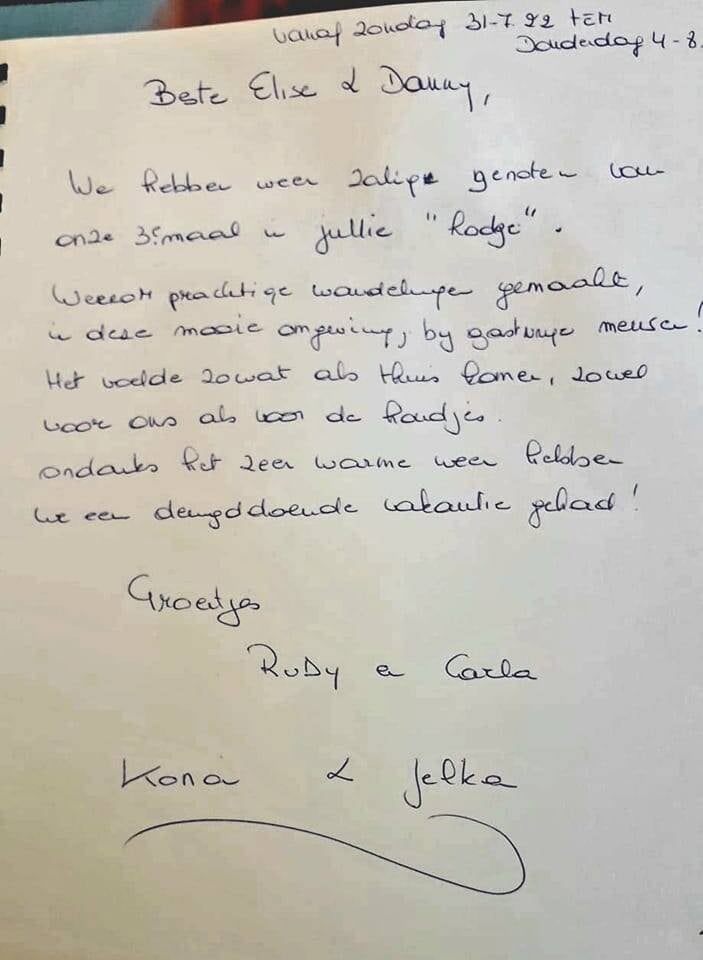 vanaf zondag 31-7.22 tem
Donderdag 4-8.
Beste Elise & Danny,
We hebben weer zalig genoten van
onze 3e maal in jullie "Lodge".
Weeral prachtige wandelingen gemaakt,
in deze mooie omgeving, by gastvrye mensen!
Het voelde zowat als thuis komen, zowel
voor ons als voor de hondjes.
ondanks het zeer warme weer hebben
we een deugddoende vakantie gehad!
Groetjes
RuDy en Carla
Kona & Jelka